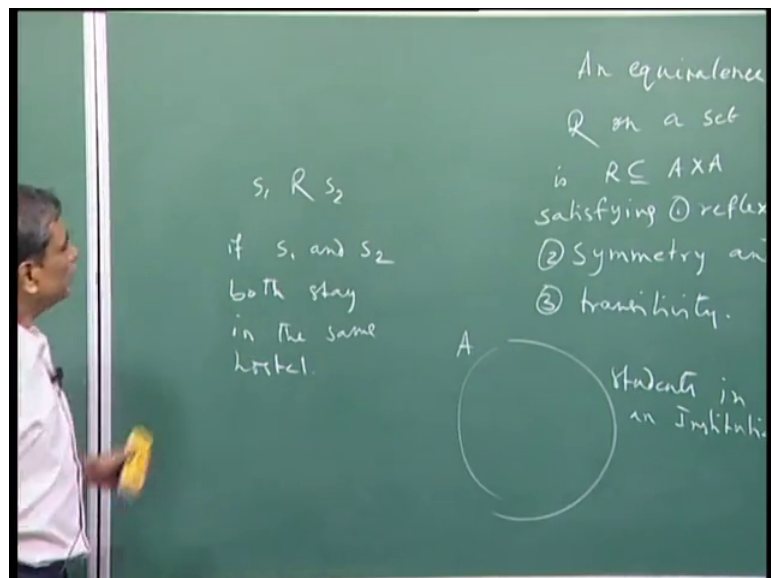 s₁ R s₂
if s₁ and s₂
both stay
in the same
hostel.
An equivalence
R on a set
is R ⊆ A×A
satisfying ① reflex
② Symmetry an
③ transitivity.
A
students in
an Instituti